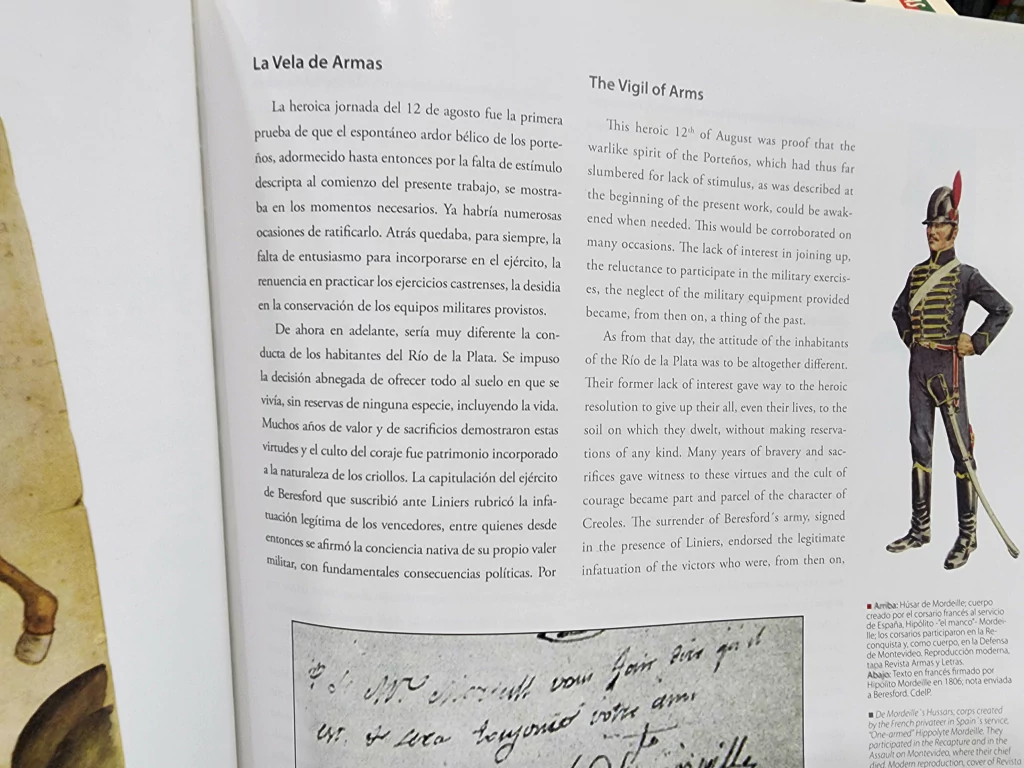 La Vela de Armas
La heroica jornada del 12 de agosto fue la primera
prueba de que el espontáneo ardor bélico de los porte-
ños, adormecido hasta entonces por la falta de estímulo
descripta al comienzo del presente trabajo, se mostra-
ba en los momentos necesarios. Ya habría numerosas
ocasiones de ratificarlo. Atrás quedaba, para siempre, la
falta de entusiasmo para incorporarse en el ejército, la
renuencia en practicar los ejercicios castrenses, la desidia
en la conservación de los equipos militares provistos.
De ahora en adelante, sería muy diferente la con-
ducta de los habitantes del Río de la Plata. Se impuso
la decisión abnegada de ofrecer todo al suelo en que se
vivía, sin reservas de ninguna especie, incluyendo la vida.
Muchos años de valor y de sacrificios demostraron estas
virtudes y el culto del coraje fue patrimonio incorporado
a la naturaleza de los criollos. La capitulación del ejército
de Beresford que suscribió ante Liniers rubricó la infa-
tuación legítima de los vencedores, entre quienes desde
entonces se afirmó la conciencia nativa de su propio valer
militar, con fundamentales consecuencias políticas. Por
The Vigil of Arms
This heroic 12th of August was proof that the
warlike spirit of the Porteños, which had thus far
slumbered for lack of stimulus, as was described at
the beginning of the present work, could be awak-
ened when needed. This would be corroborated on
many occasions. The lack of interest in joining up,
the reluctance to participate in the military exercis-
es, the neglect of the military equipment provided
became, from then on, a thing of the past.
As from that day, the attitude of the inhabitants
of the Río de la Plata was to be altogether different.
Their former lack of interest gave way to the heroic
resolution to give up their all, even their lives, to the
soil on which they dwelt, without making reserva-
tions of any kind. Many years of bravery and sac-
rifices gave witness to these virtues and the cult of
courage became part and parcel of the character of
Creoles. The surrender of Beresford´s army, signed
in the presence of Liniers, endorsed the legitimate
infatuation of the victors who were, from then on,
■ Arriba: Húsar de Mordeille; cuerpo
creado por el corsario francés al servicio
de España, Hipólito -"el manco"- Mordei-
lle; los corsarios participaron en la Re-
conquista y, como cuerpo, en la Defensa
de Montevideo. Reproducción moderna,
tapa Revista Armas y Letras.
Abajo: Texto en francés firmado por
Hipólito Mordeille en 1806; nota enviada
a Beresford. CdelP.
■ De Mordeille´s Hussars; corps created
by the French privateer in Spain´s service,
"One-armed" Hippolyte Mordeille. They
participated in the Recapture and in the
Assault on Montevideo, where their chief
died. Modern reproduction, cover of Revista
vous
dire qu'il
est et sera toujours votre ami